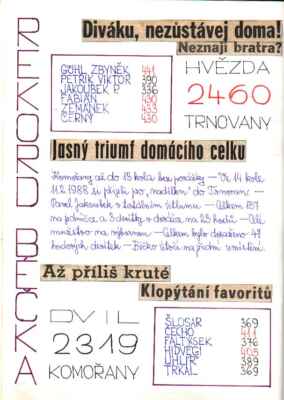 REKORD BÉČKA
Diváku, nezůstávej doma!
Neznají bratra?
GÜHL ZBYNĚK 441
PETŘÍK VIKTOR 390
JAKOUBEK P. 336
FABIAN 430
ZEMÁNEK 433
ČERNÝ 430
HVĚZDA
2460
TRNOVANY
Jasný triumf domácího celku
Komořany až do 13 kola bez porážky — Ve 14 kole
11.2.1988 si přijela pro "nadílku" do Trnovan —
Pavel Jakoubek v totálním útlumu — Celkem 157
na polovica a 3 devítky v dorážce na 23 hodů — Oči
množství na výkonnou — Celkem bylo dosaženo 49
hodových devítek — Béčko útočí na přední umístění.
Až příliš kruté
Klopýtání favoritů
DVIL
2319
KOMOŘANY
ŠLOSAR 369
ČECHO 411
FALTÝSEK 376
HIDVÉGI 405
UHLÍŘ 389
TRKAL 369